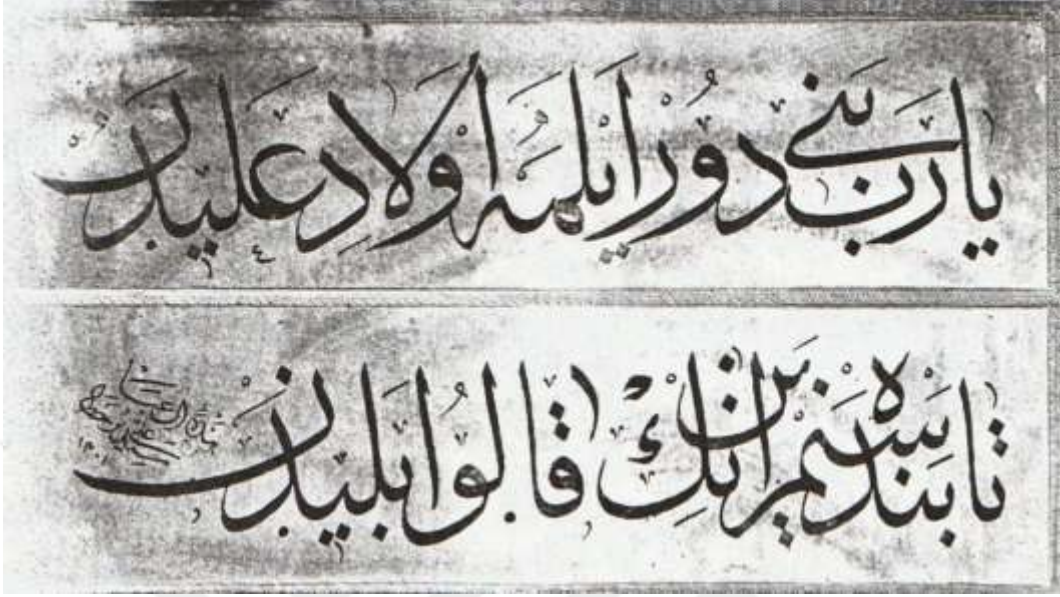 يا رب بنى دور ايلمه اولاد عليدن
تا بنده سييم بن انك قالوا بليدن